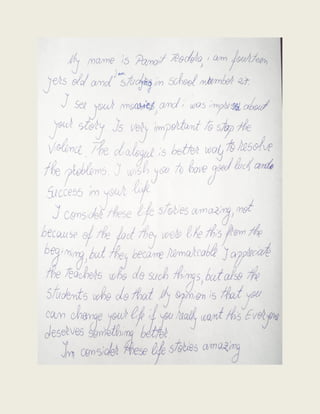 My name is Panait Teodora, i am fourteen
yers old and i'm studying in school number 27.
I see your movies, and i was impress about
your story. Is very important to stop the
violence. The dialogue is better way to resolve
the problems. I wish you to have good luck and
success in your life
I consider these life stories amazing, not
because of the fact they were like this from the
beginning, but they became remarkable I appreciate
the teachers who do such things, but also the
students who do that My opinion is that you
can change your life if you really want this Everyone
deserves something better
Im consider these life stories amazing